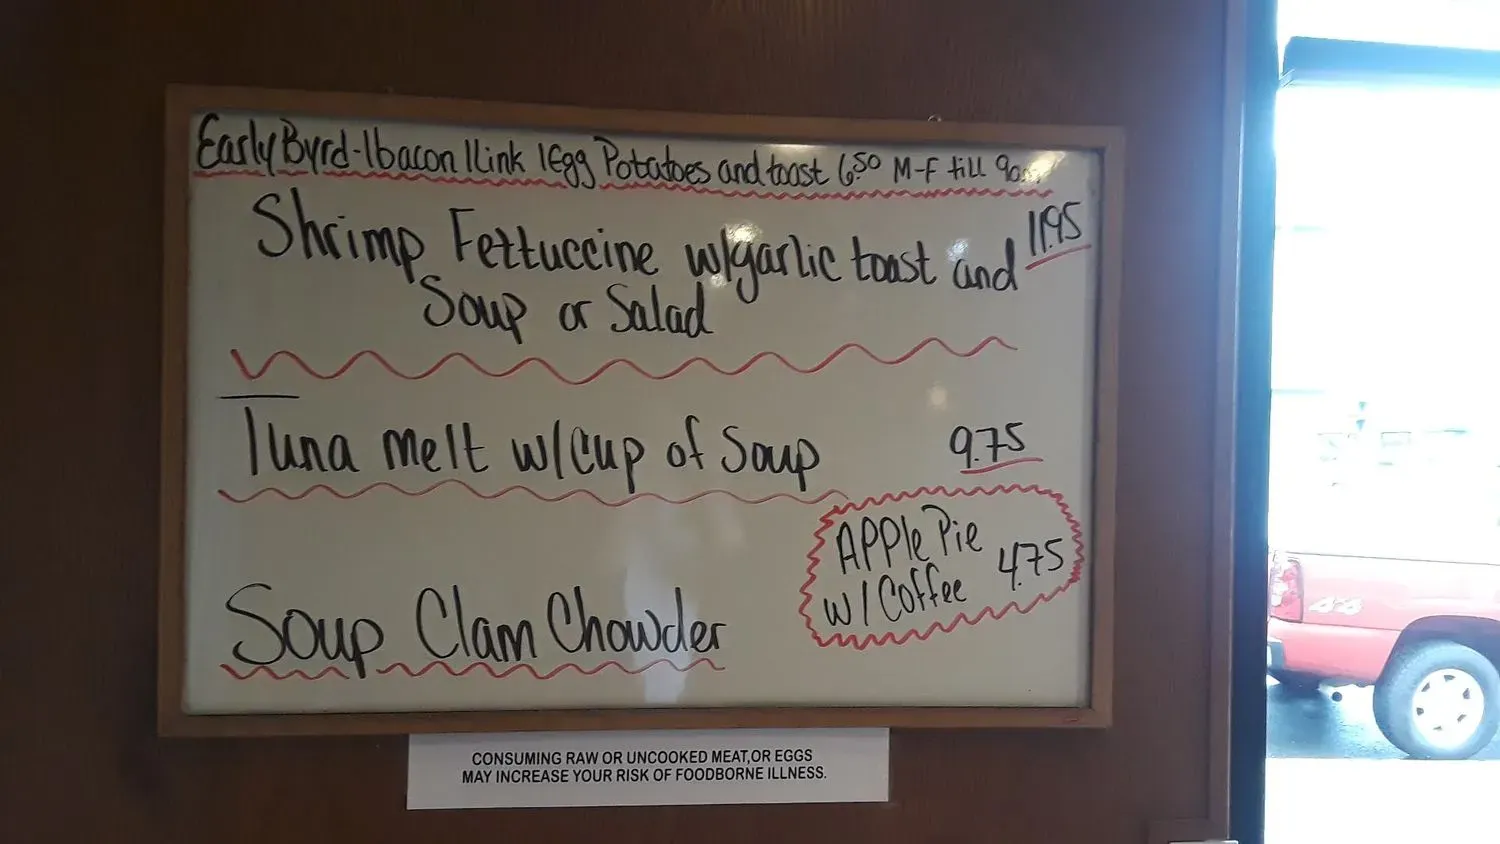 Early Byrd-1bacon 1link 1Egg Potatoes and toast 6.50 M-F till 9am
Shrimp Fettuccine w/garlic toast and 11.95
Soup or Salad
Tuna melt w/cup of Soup 9.75
Apple Pie
w/Coffee 4.75
Soup Clam Chowder
CONSUMING RAW OR UNCOOKED MEAT,OR EGGS
MAY INCREASE YOUR RISK OF FOODBORNE ILLNESS.
4x4